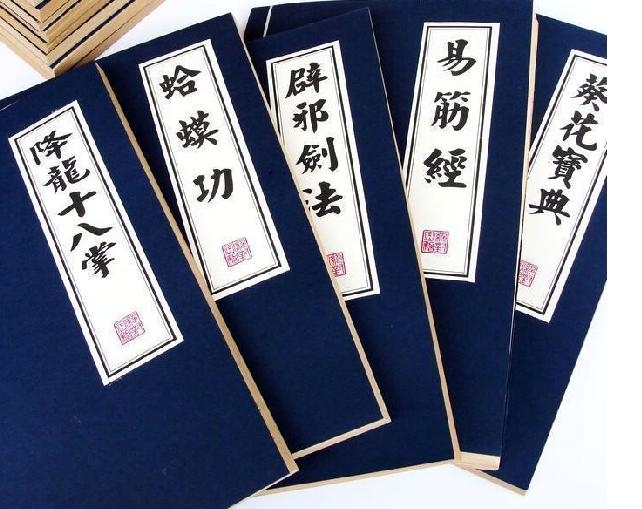 降龍十八掌
蛤蟆功
辟邪劍法
易筋經
葵花寶典